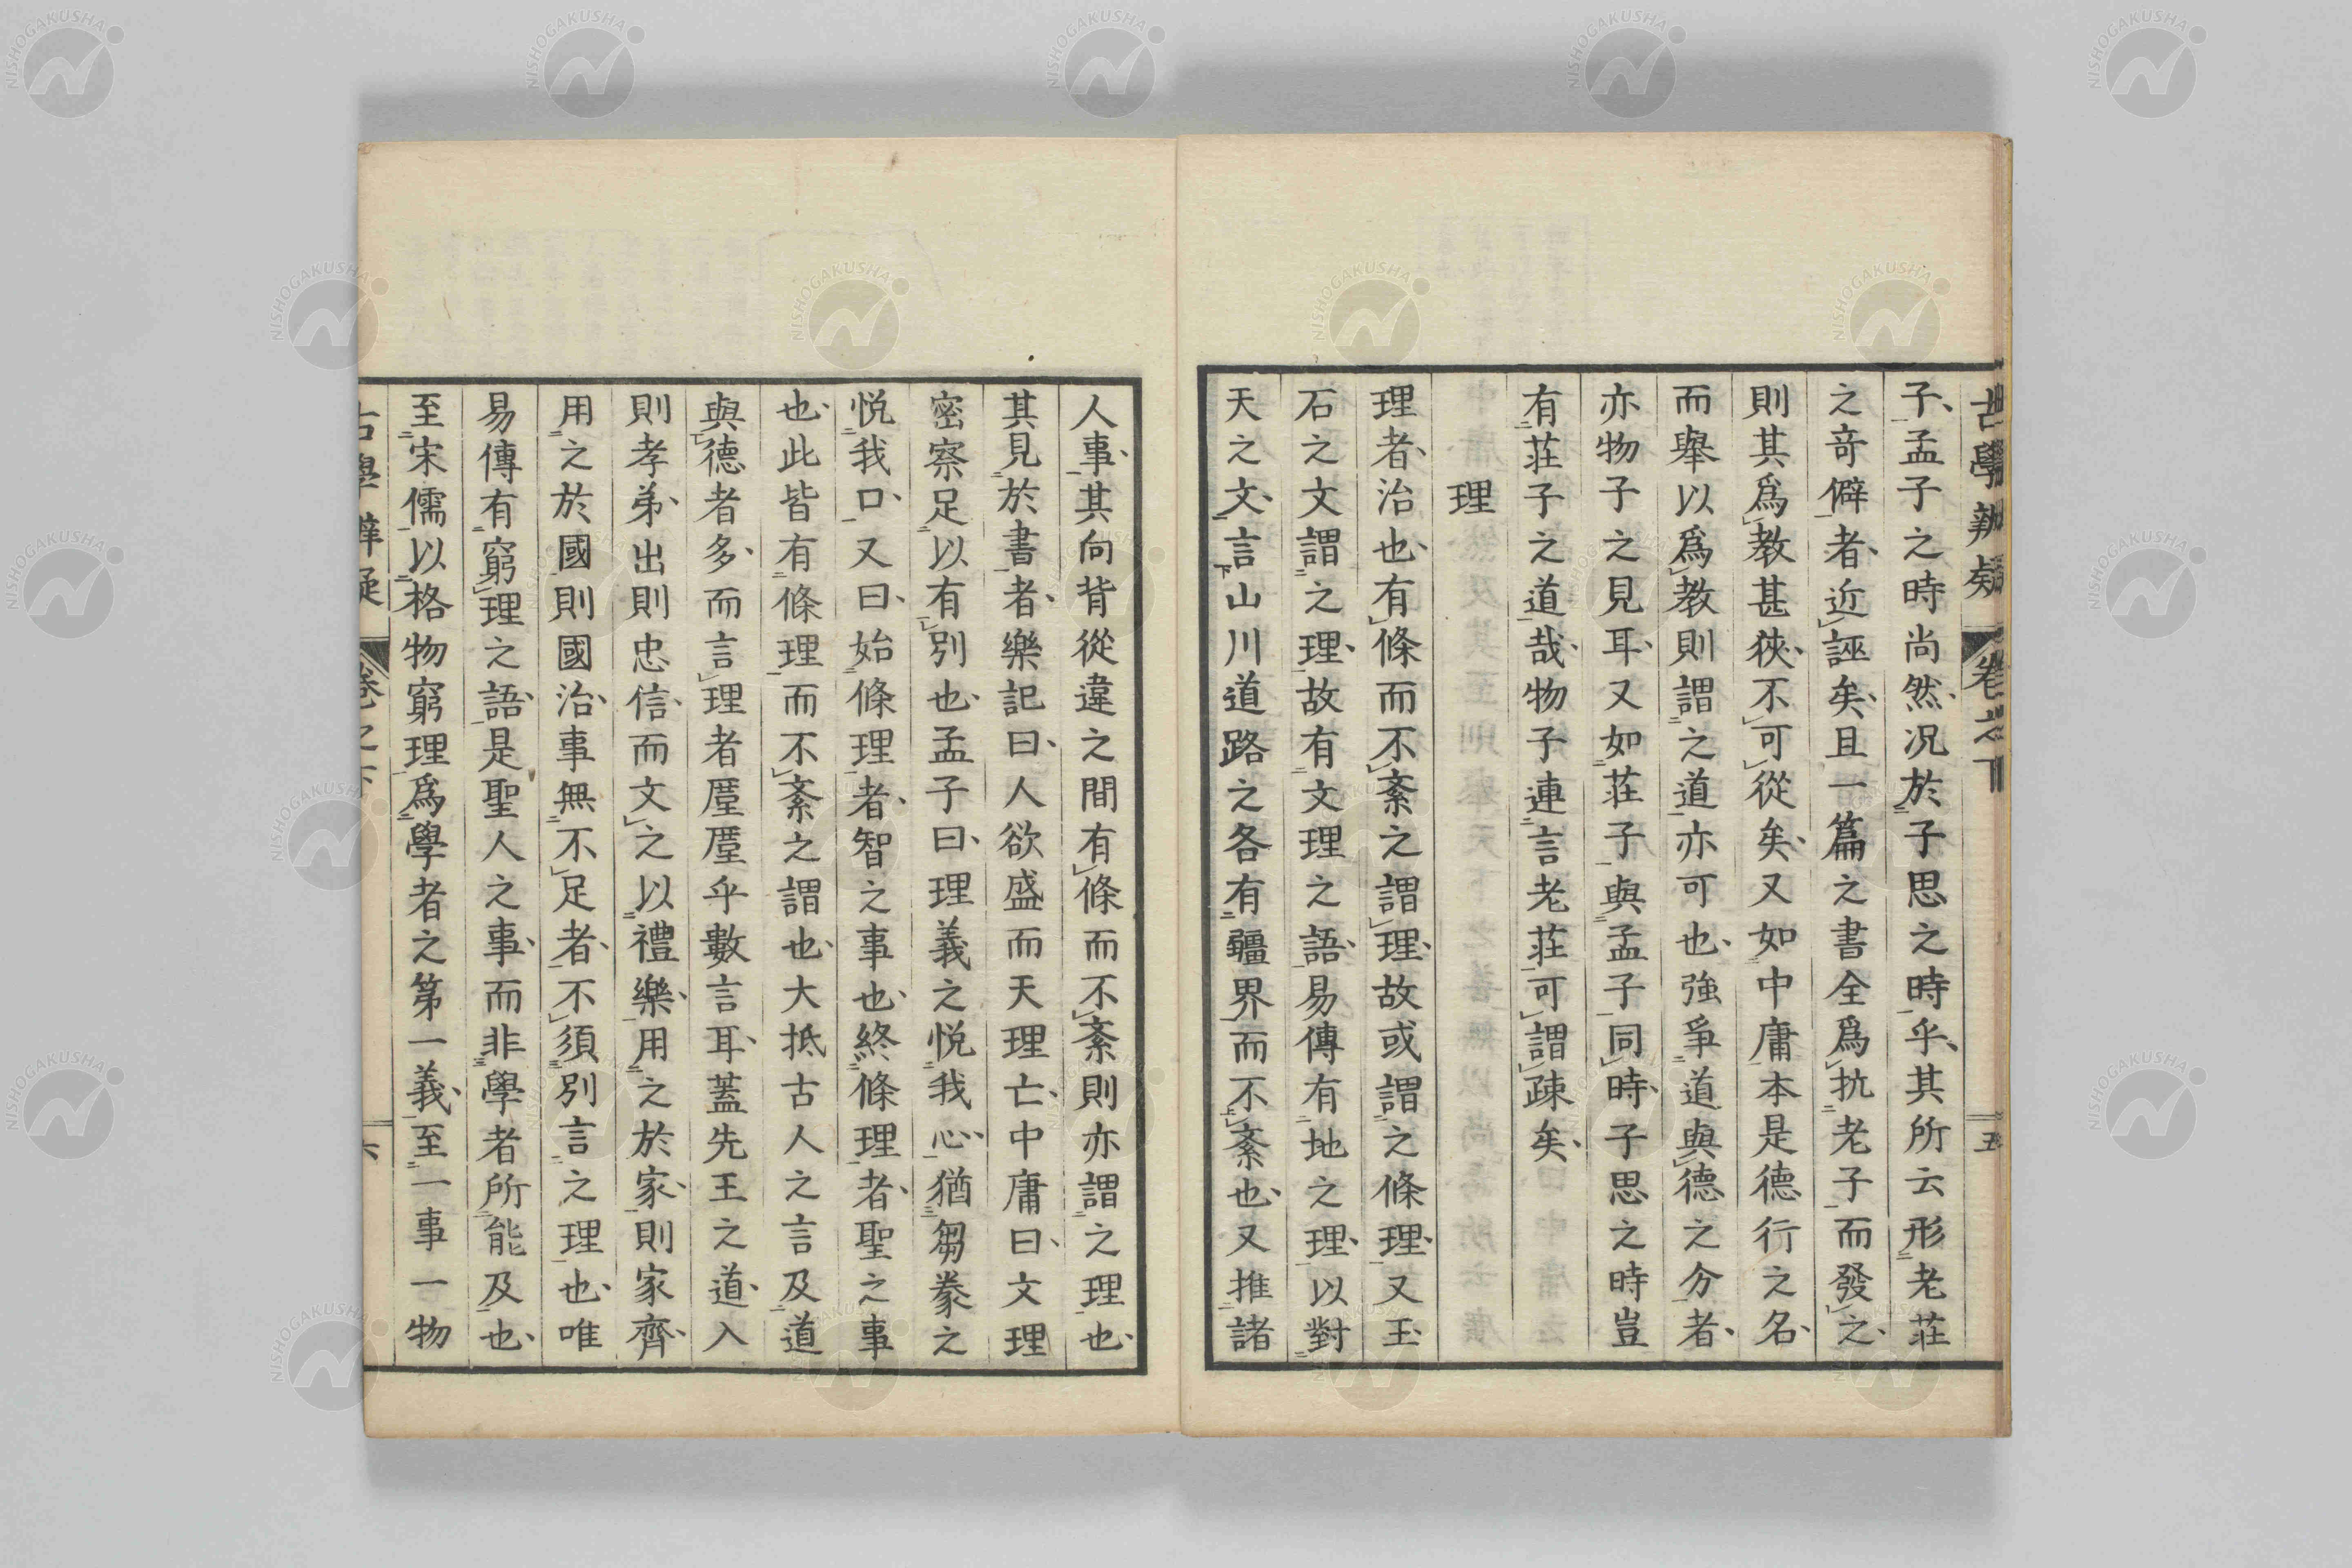 古學辨疑 卷之下 五
子孟子之時尚然况於子思之時乎其所云形老莊
之奇僻者近誣矣且一篇之書全爲抗老子而發之
則其爲教甚狹不可從矣又如中庸本是德行之名
而舉以爲教則謂之道亦可也強爭道與德之分者
亦物子之見耳又如莊子與孟子同時子思之時豈
有莊子之道哉物子連言老莊可謂疎矣
理
理者治也有條而不紊之謂理故或謂之條理又玉
石之文謂之理故有文理之語易傳有地之理以對
天之文言山川道路之各有疆界而不紊也又推諸
人事其向背從違之間有條而不紊則亦謂之理也
其見於書者樂記曰人欲盛而天理亡中庸曰文理
密察足以有別也孟子曰理義之悦我心猶芻豢之
悦我口又曰始條理者智之事也終條理者聖之事
也此皆有條理而不紊之謂也大抵古人之言及道
與德者多而言理者厪厪乎數言耳蓋先王之道入
則孝弟出則忠信而文之以禮樂用之於家則家齊
用之於國則國治事無不足者不須別言之理也唯
易傳有窮理之語是聖人之事而非學者所能及也
至宋儒以格物窮理爲學者之第一義至一事一物
古學辨疑 卷之下 六
NISHOGAKUSHA